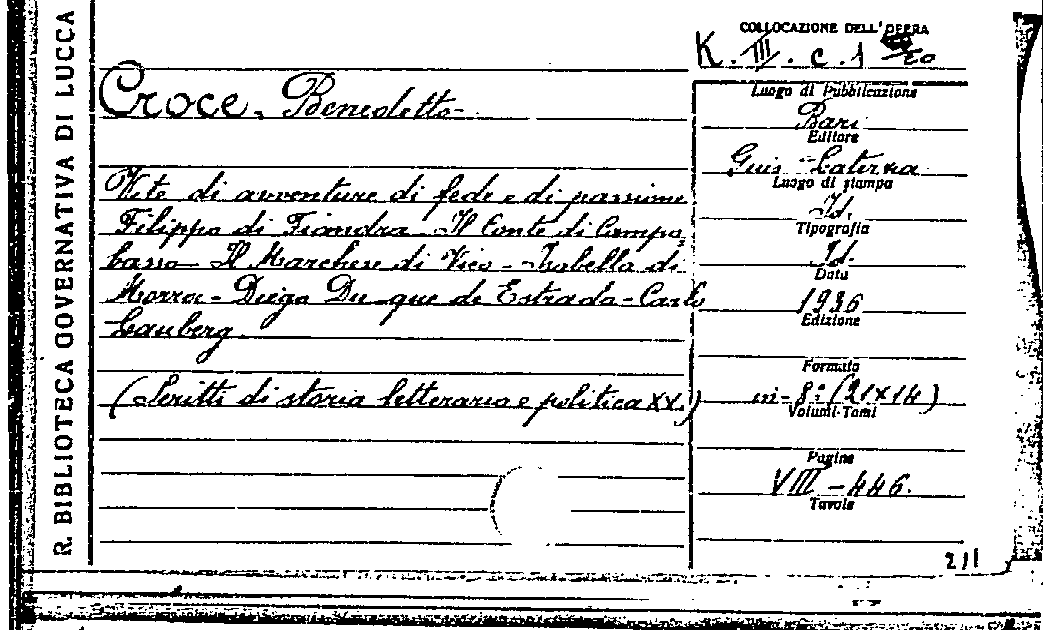 R. BIBLIOTECA GOVERNATIVA DI LUCCA
COLLOCAZIONE DELL'OPERA
K. III. c. 1 20
Croce, Benedetto
Vite di avventure di fede e di passione
Filippo di Fiandra - Il Conte di Campo
basso - Il Marchese di Vico - Isabella di
Morra - Diego Du-que de Estrada - Carlo
Lauberg.
(Scritti di storia letteraria e politica XX.)
Luogo di Pubblicazione
Bari
Editore
Gius - Laterza
Luogo di stampa
Id.
Tipografia
Id.
Data
1936
Edizione
Formato
in-8° (21x14)
Volumi-Tomi
Pagine
VIII - 446.
Tavole
211